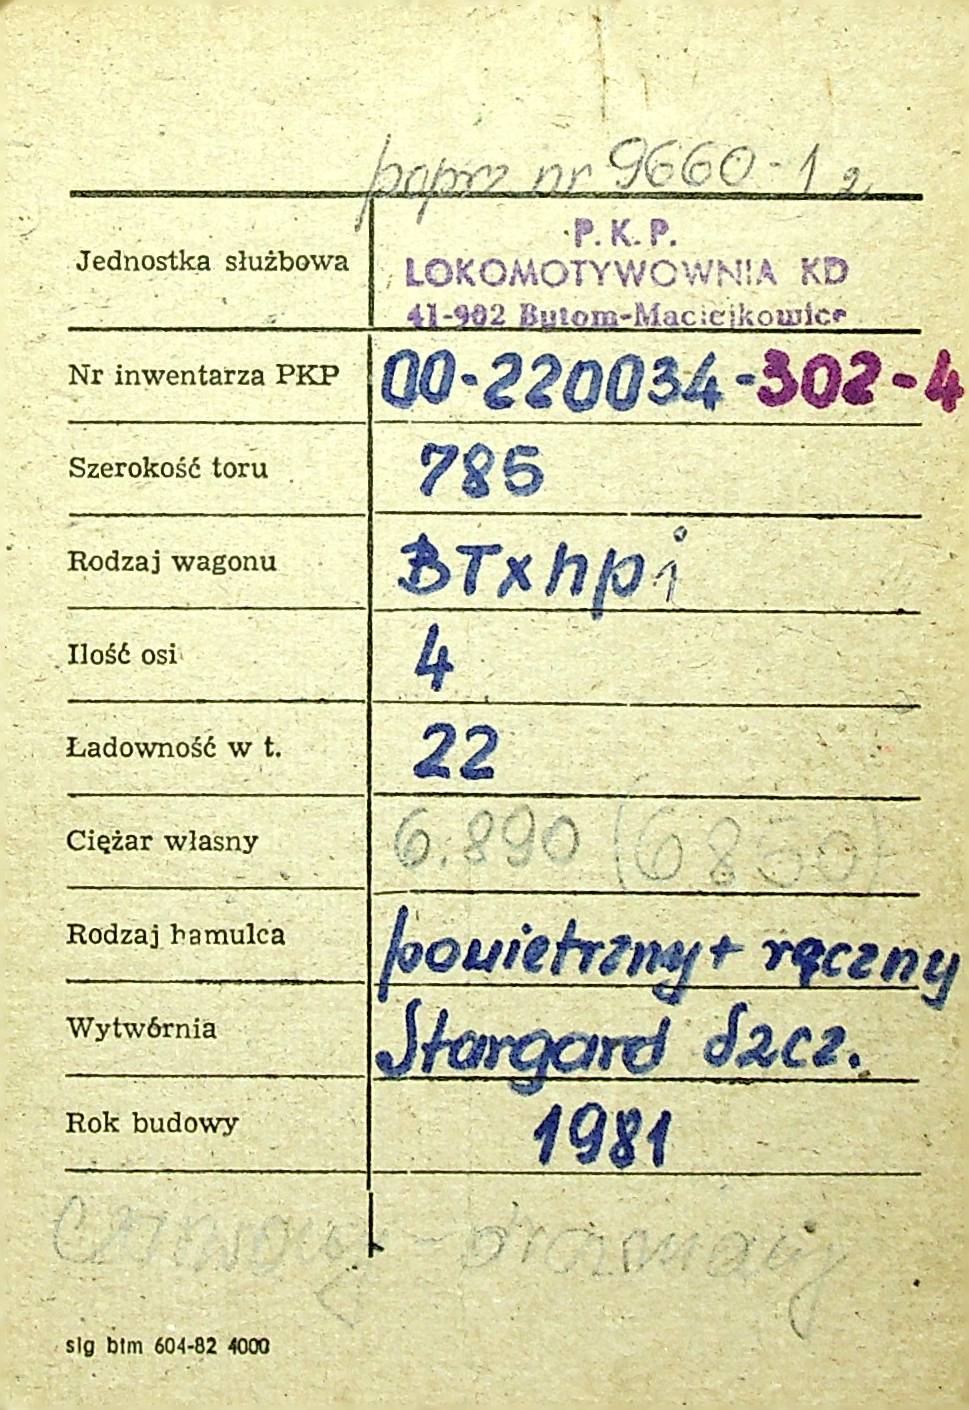 poprz nr 9660-1 2
Jednostka służbowa P.K.P.
LOKOMOTYWOWNIA KD
41-902 Bytom-Maciejkowice
Nr inwentarza PKP 00-220034-302-4
Szerokość toru 785
Rodzaj wagonu BTxhpi
Ilość osi 4
Ładowność w t. 22
Ciężar własny 6.890 (6850)
Rodzaj hamulca powietrzny + ręczny
Wytwórnia Stargard Szcz.
Rok budowy 1981
Czerwony -
slg btm 604-82 4000